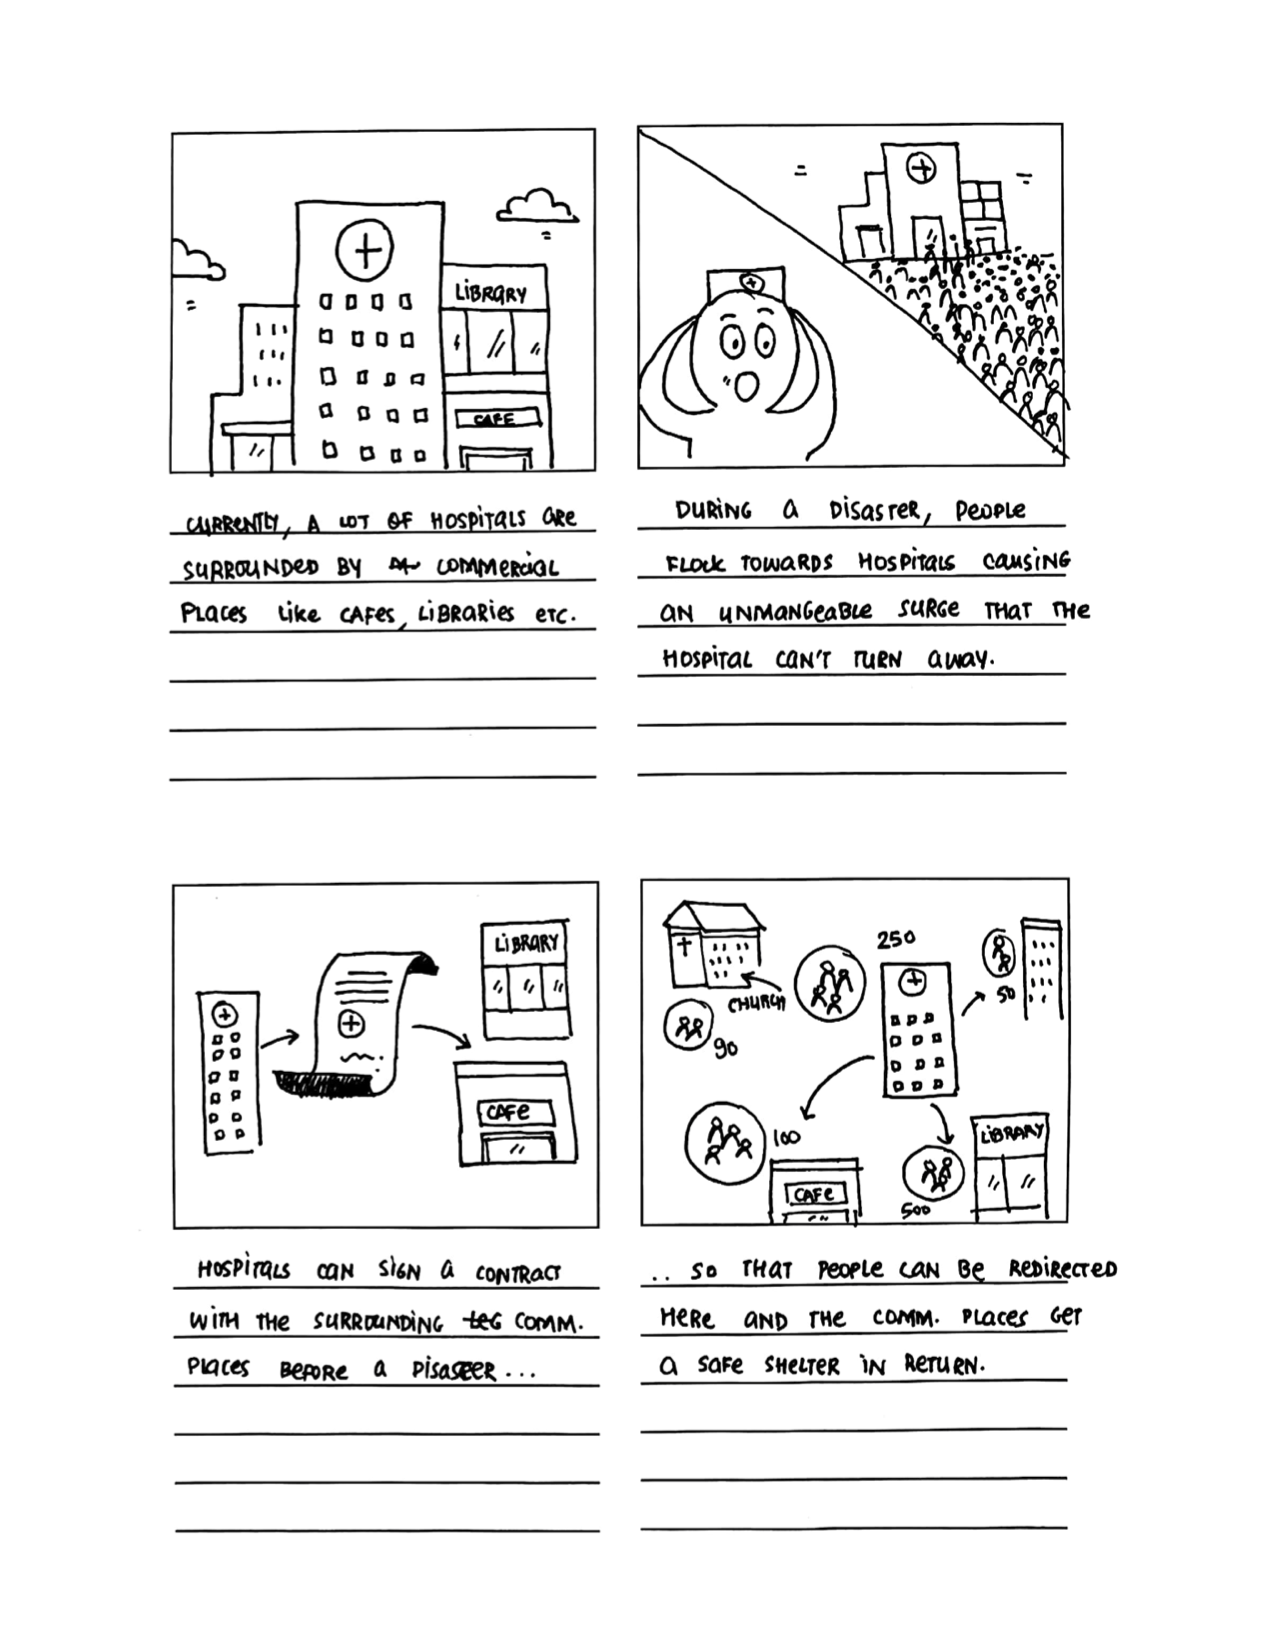 LIBRARY
CAFE
CURRENTLY, A LOT OF HOSPITALS ARE
SURROUNDED BY COMMERCIAL
PLACES LIKE CAFES, LIBRARIES ETC.
DURING A DISASTER, PEOPLE
FLOCK TOWARDS HOSPITALS CAUSING
AN UNMANGEABLE SURGE THAT THE
HOSPITAL CAN'T TURN AWAY.
LIBRARY
CAFE
HOSPITALS CAN SIGN A CONTRACT
WITH THE SURROUNDING COMM.
PLACES BEFORE A DISASTER...
250
50
CHURCH
90
100
CAFE
LIBRARY
500
.. SO THAT PEOPLE CAN BE REDIRECTED
HERE AND THE COMM. PLACES GET
A SAFE SHELTER IN RETURN.